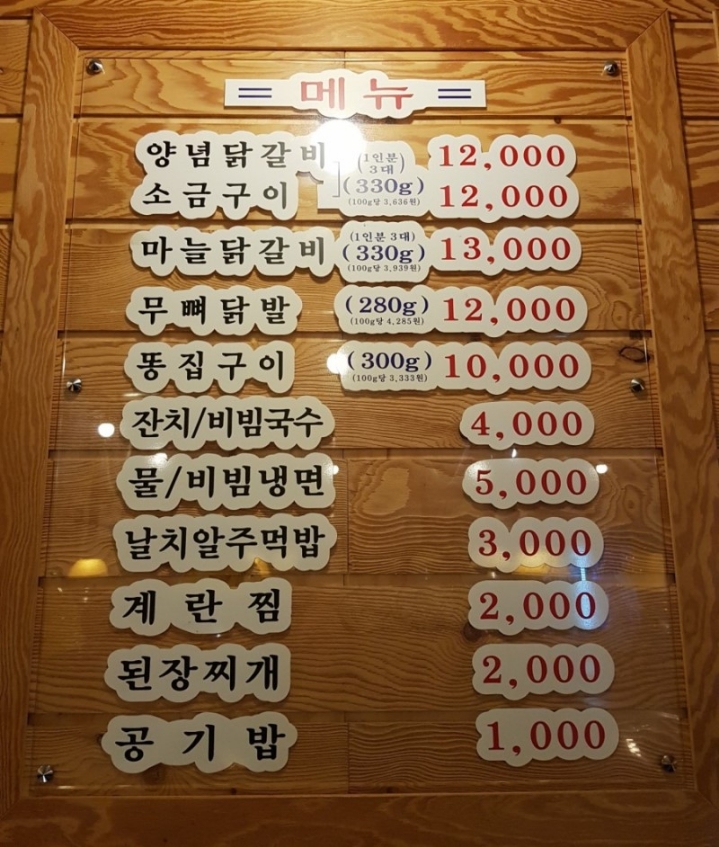 = 메뉴 =
양념닭갈비 (1인분 3대) 12,000
소금구이 (330g) (100g당 3,636원) 12,000
마늘닭갈비 (1인분 3대) (330g) (100g당 3,939원) 13,000
무뼈닭발 (280g) (100g당 4,285원) 12,000
똥집구이 (300g) (100g당 3,333원) 10,000
잔치/비빔국수 4,000
물/비빔냉면 5,000
날치알주먹밥 3,000
계란찜 2,000
된장찌개 2,000
공기밥 1,000